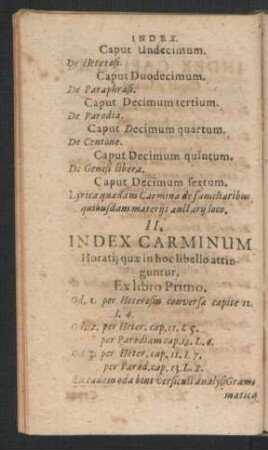 INDEX.
Caput Undecimum.
De Heterosi.
Caput Duodecimum.
De Paraphrasi.
Caput Decimum tertium.
De Parodia.
Caput Decimum quartum.
De Centone.
Caput Decimum quintum.
De Genesi libera.
Caput Decimum sextum.
Lyrica quædam Carmina de familiaribus
quibusdam materijs auctarij loco.
II.
INDEX CARMINUM
Horatij quæ in hoc libello attin-
guntur.
Ex libro Primo.
Od. 1. per Heterosin conversæ capite 11.
l. 4.
Od. 2. per Heter. cap. 11. l. 5.
per Parodiam cap. 13. L. 6.
Od. 3. per Heter. cap. 11. l. 7.
per Parod. cap. 13. L.
Ex eadem oda bini versiculi analysi Gram-
matica